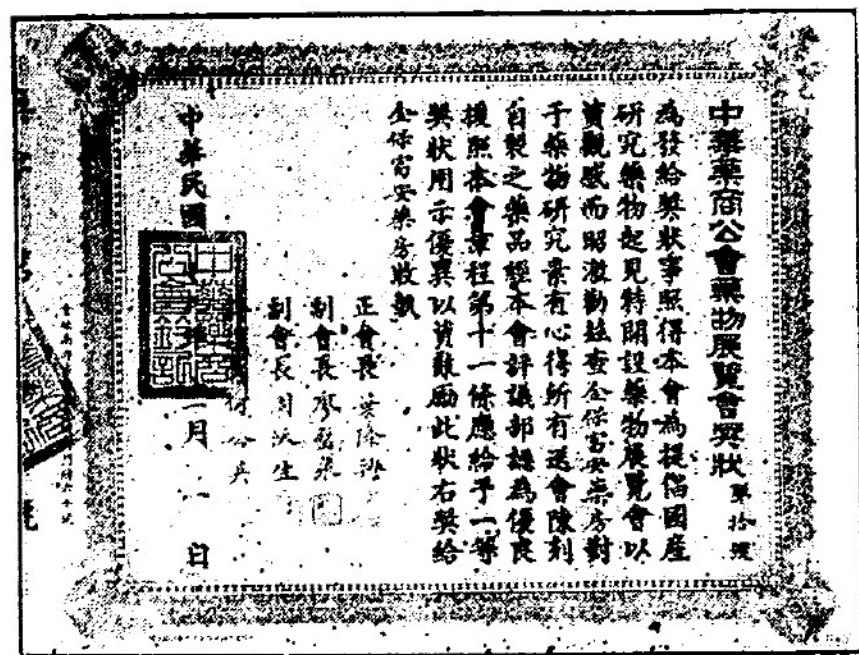 中華藥商公會藥物展覽會奬狀 第拾號
為發給奬狀事照得本會為提倡國産
研究藥物起見特開設藥物展覽會以
資觀感而昭激勸玆查金保富安藥房對
于藥物研究素有心得所有送會陳列
自製之藥品經本會評議部認為優良
援照本會章程第十一條應給予一等
奬狀用示優異以資鼓勵此狀右奬給
金保富安藥房收執
正會長
副會長
副會長
中華民國 月 日